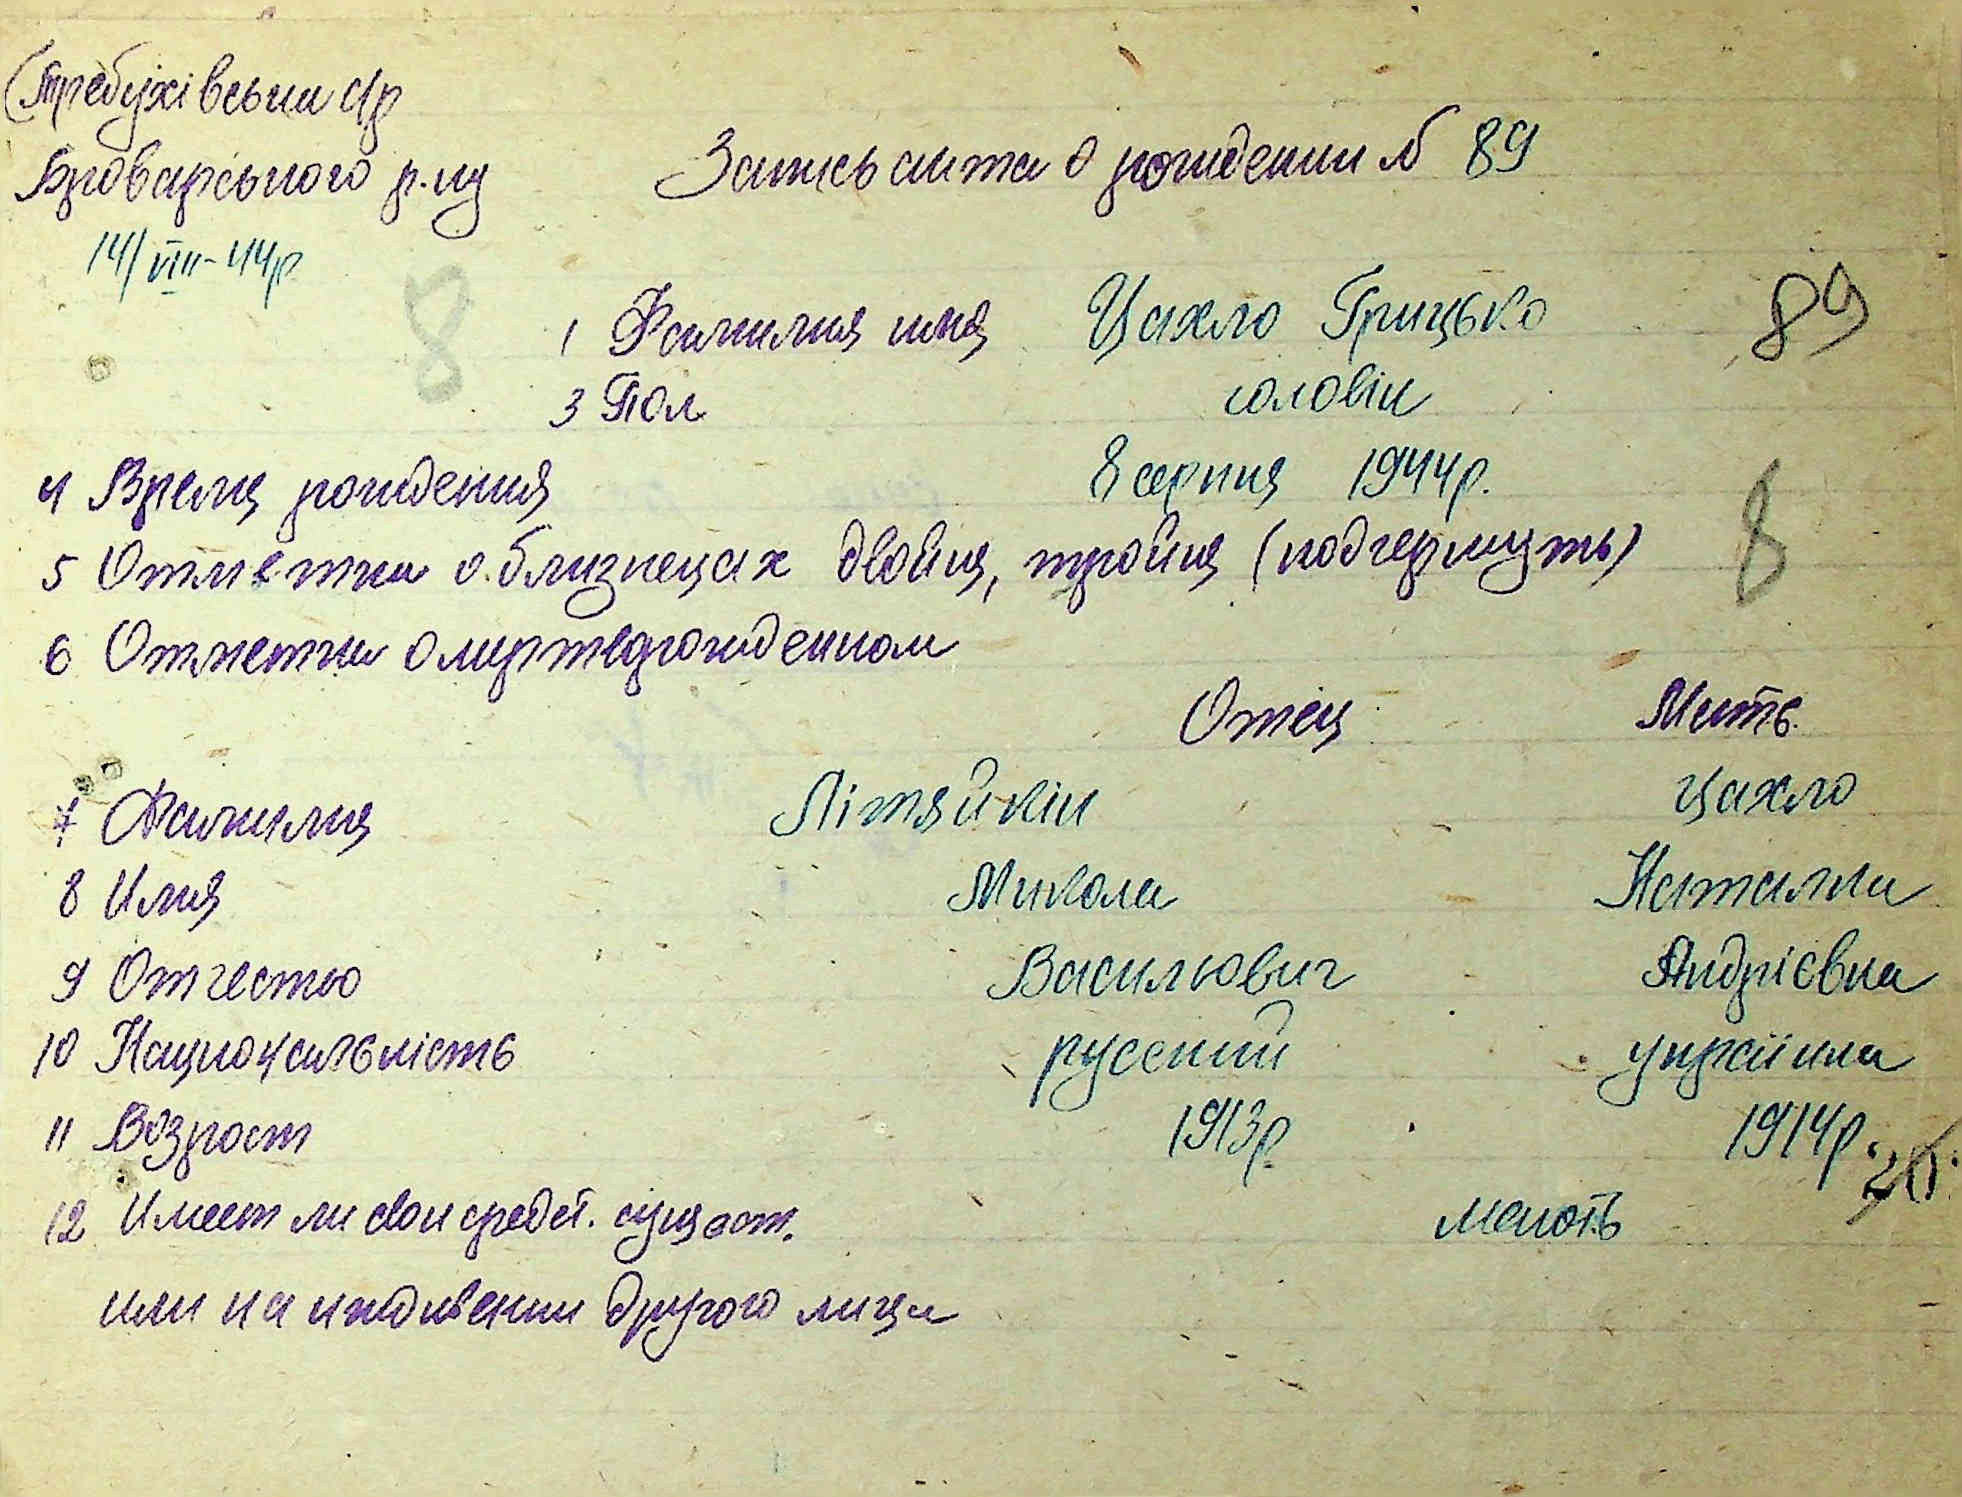 Требухівська с/р
Броварського р-ну
Запись акта о рождении № 89
14/VIII-44р.
8
1 Фамилия имя Цахло Грицько
89
3 Пол чоловік
4 Время рождения 8 серпня 1944р.
8
5 Отметки о близнецах двойня, тройня (подчеркнуть)
6 Отметки о мертворожденном
Отец Мать
7 Фамилия Літяйкін Цахло
8 Имя Микола Наталка
9 Отчество Васильович Андрієвна
10 Национальність русский українка
11 Возраст 1913р. 1914р.
12 Имеет ли свои средст. сущест. мають
или на иждивении другого лица